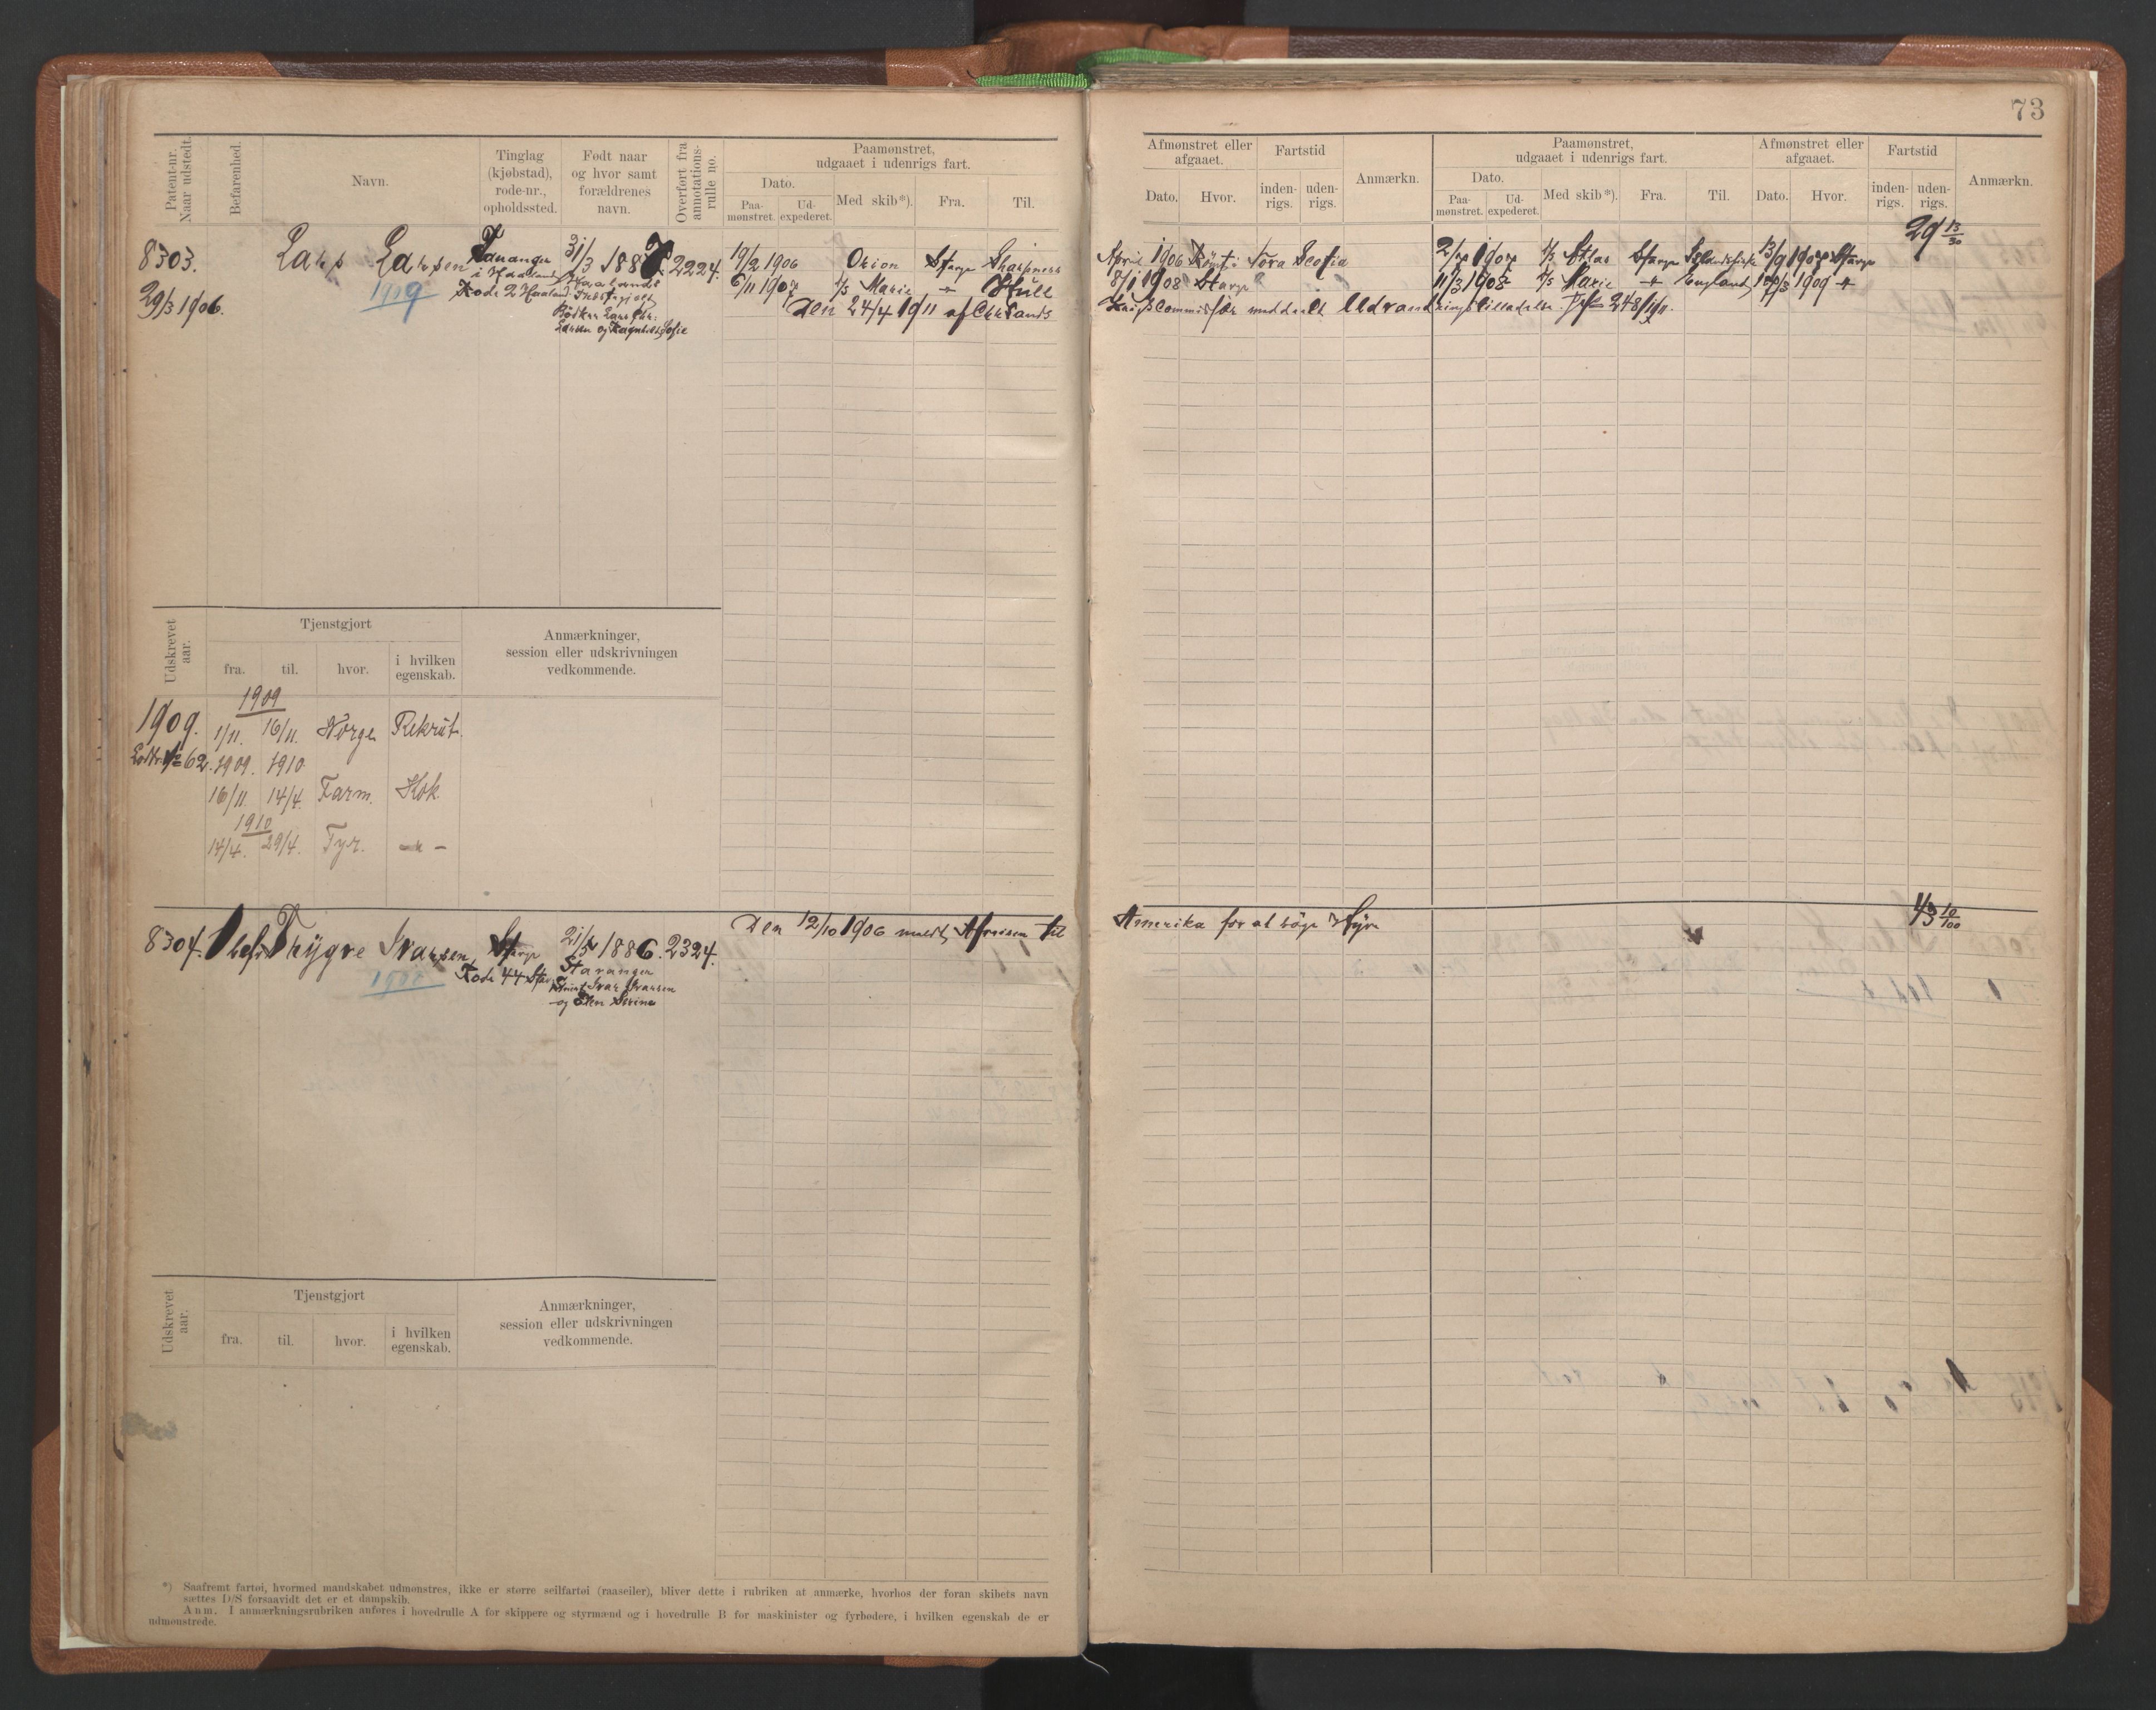 73
Patent-nr. Naar udstedt.
Befarenhed.
Navn.
Tinglag (kjøbstad), rode-nr., opholdssted.
Født naar og hvor samt forældrenes navn.
Overført fra annotations-rulle no.
Paamønstret, udgaaet i udenrigs fart.
Dato.
Paa-mønstret.
Ud-expederet.
Med skib*).
Fra.
Til.
8303.
29/3 1906.
Lars Larsen
1909
Tananger
i Haaland
Rode 2 Haaland
31/3 1887
2224.
19/2 1906 Orion Stavgr Sharpness
6/11 1907 Marie Hull
Den 24/4 1911 af Chr Sands
Udskrevet aar.
Tjenstgjort
fra.
til.
hvor.
i hvilken egenskab.
Anmærkninger, session eller udskrivningen vedkommende.
1909.
1909
1/11. 16/11. Norge Rekrut.
62. 1909. 1910.
16/11. 14/4. Farm. Kok.
1910
14/4. 29/4. Tyr. - " -
8304. Ubef. Trygve Ivarsen, Stavgr
1908
Rode 44
21/5 1886. 2324.
Stavanger
Ivar Ivarsen
og Elen Serine
Den 12/10 1906 meldt Afreisen til
Udskrevet aar.
Tjenstgjort
fra.
til.
hvor.
i hvilken egenskab.
Anmærkninger, session eller udskrivningen vedkommende.
*) Saafremt fartøi, hvormed mandskabet udmønstres, ikke er større seilfartøi (raaseiler), bliver dette i rubriken at anmærke, hvorhos der foran skibets navn
sættes D/S forsaavidt det er et dampskib.
Anm. I anmærkningsrubriken anføres i hovedrulle A for skippere og styrmænd og i hovedrulle B for maskinister og fyrbødere, i hvilken egenskab de er
udmønstrede.
Afmønstret eller afgaaet.
Dato.
Hvor.
Fartstid
inden-rigs.
uden-rigs.
Anmærkn.
Paamønstret, udgaaet i udenrigs fart.
Dato.
Paa-mønstret.
Ud-expederet.
Med skib*).
Fra.
Til.
Afmønstret eller afgaaet.
Dato.
Hvor.
Fartstid
inden-rigs.
uden-rigs.
Anmærkn.
29 13/30
April 1906 Rømt i Nova Scotia
1907 Atlas Stavgr 13/9 1907 Stavgr
8/1 1908 Stavgr
11/3 1908 Marie England 1909
meddelt Udvandringstilladelse 248/1911.
Amerika for at søge Hyre
43 10/100